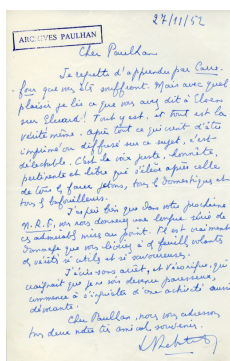 27/11/52
ARCHIVES PAULHAN
Cher Paulhan
Je regrette d'apprendre par
que vous êtes souffrant. Mais avec quel
plaisir je lis ce que vous avez dit à
sur Eluard! Tout y est, et tout est la
vérité même. Après tout ce qui vient d'être
imprimé ou diffusé sur ce sujet, c'est
délectable. C'est la voix juste, honnête,
pertinente et libre qui s'élève après celle
de tous les faux jetons, tous les domestiques et
tous les bafouilleurs.
J'espère bien que dans votre prochaine
N.R.F. vous nous donnerez une longue série de
ces admirables mises au point. Il est vraiment
dommage que vous livriez à des feuilles volantes
des vérités si utiles et si savoureuses.
J'écris sans arrêt, et Véronique, qui
craignait que je ne sois devenu paresseux,
commence à s'inquiéter d'une activité aussi
dévorante.
Cher Paulhan, nous vous adressons
tous deux notre très amical souvenir.